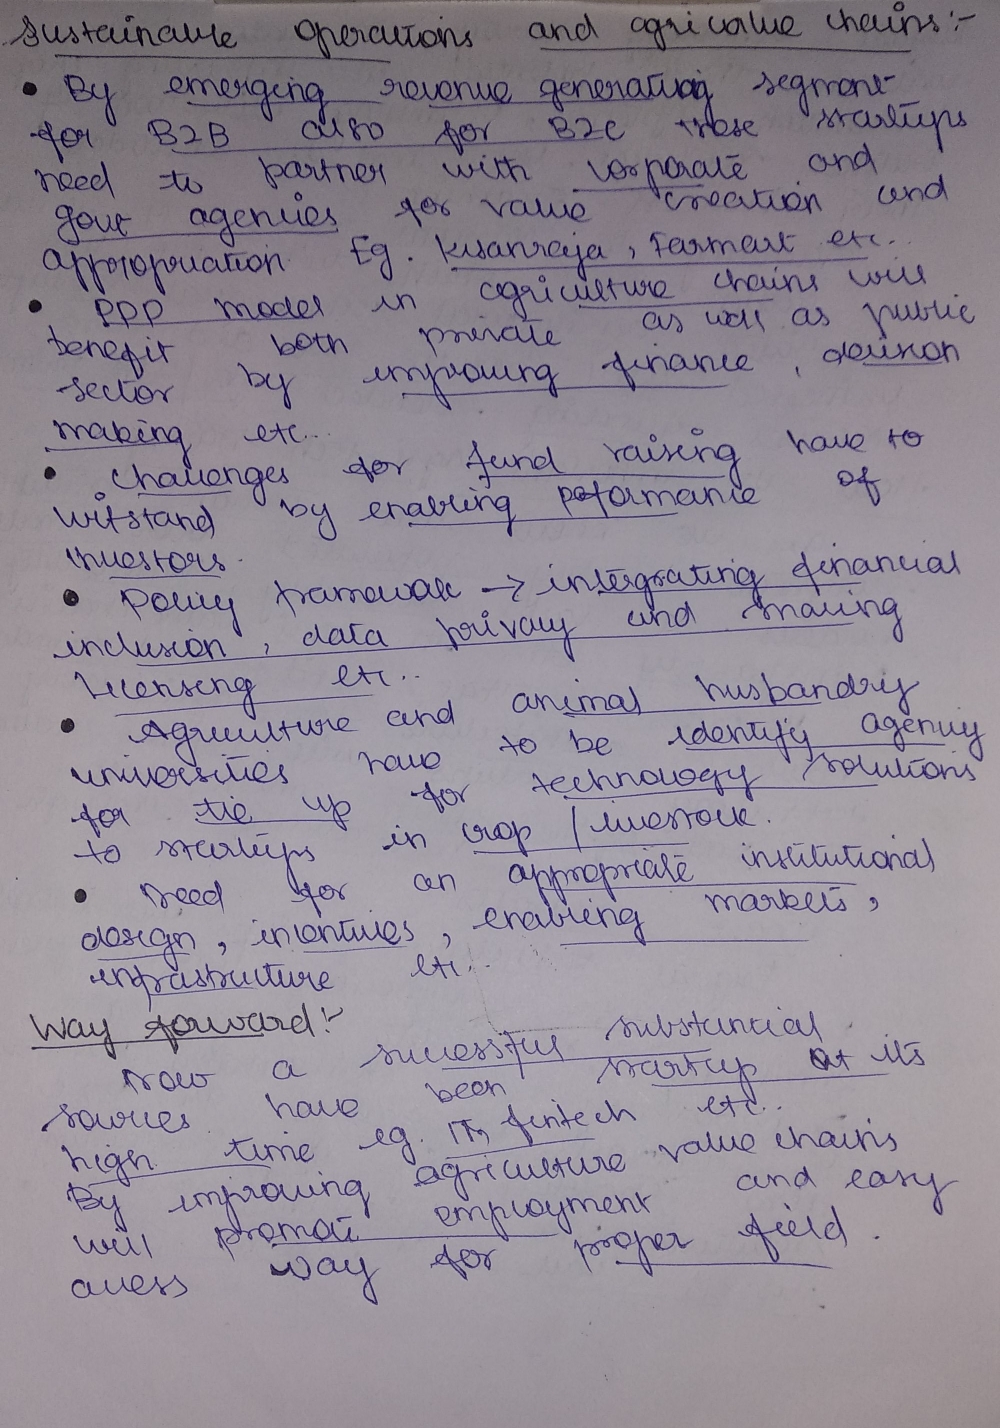 Sustainable operations and agri value chains:-
• By emerging revenue generating segment
for B2B also for B2C these startups
need to partner with corporate and
govt agencies for value creation and
appropriation Eg. Kisanraja, Farmart etc..
• PPP model in agriculture chains will
benefit both private as well as public
sector by improving finance, decision
making etc...
• Challenges for fund raising have to
witstand by enabling peformance of
investors.
• Policy framework → integrating financial
inclusion, data privacy and sharing
licensing etc..
• Agriculture and animal husbandry
universities have to be identify agency
for tie up for technology solutions
to startups in crop / livestock.
• Need for an appropriate institutional
design, incentives, enabling markets,
infrastructure etc..
Way forward:-
Now a successful substancial
sources have been startup at its
high time eg. IT, fintech etc..
By improving agriculture value chains
will promote employment and easy
access way for proper field.